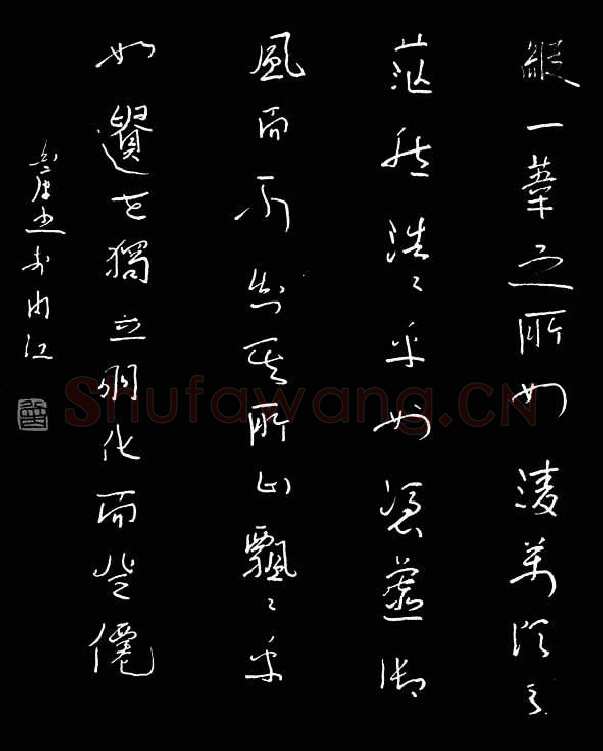 縱一葦之所如凌萬頃之
茫然浩〻乎如憑虛御
風而不知其所止飄〻乎
如遺世獨立羽化而登僊
江
Shufawang.CN